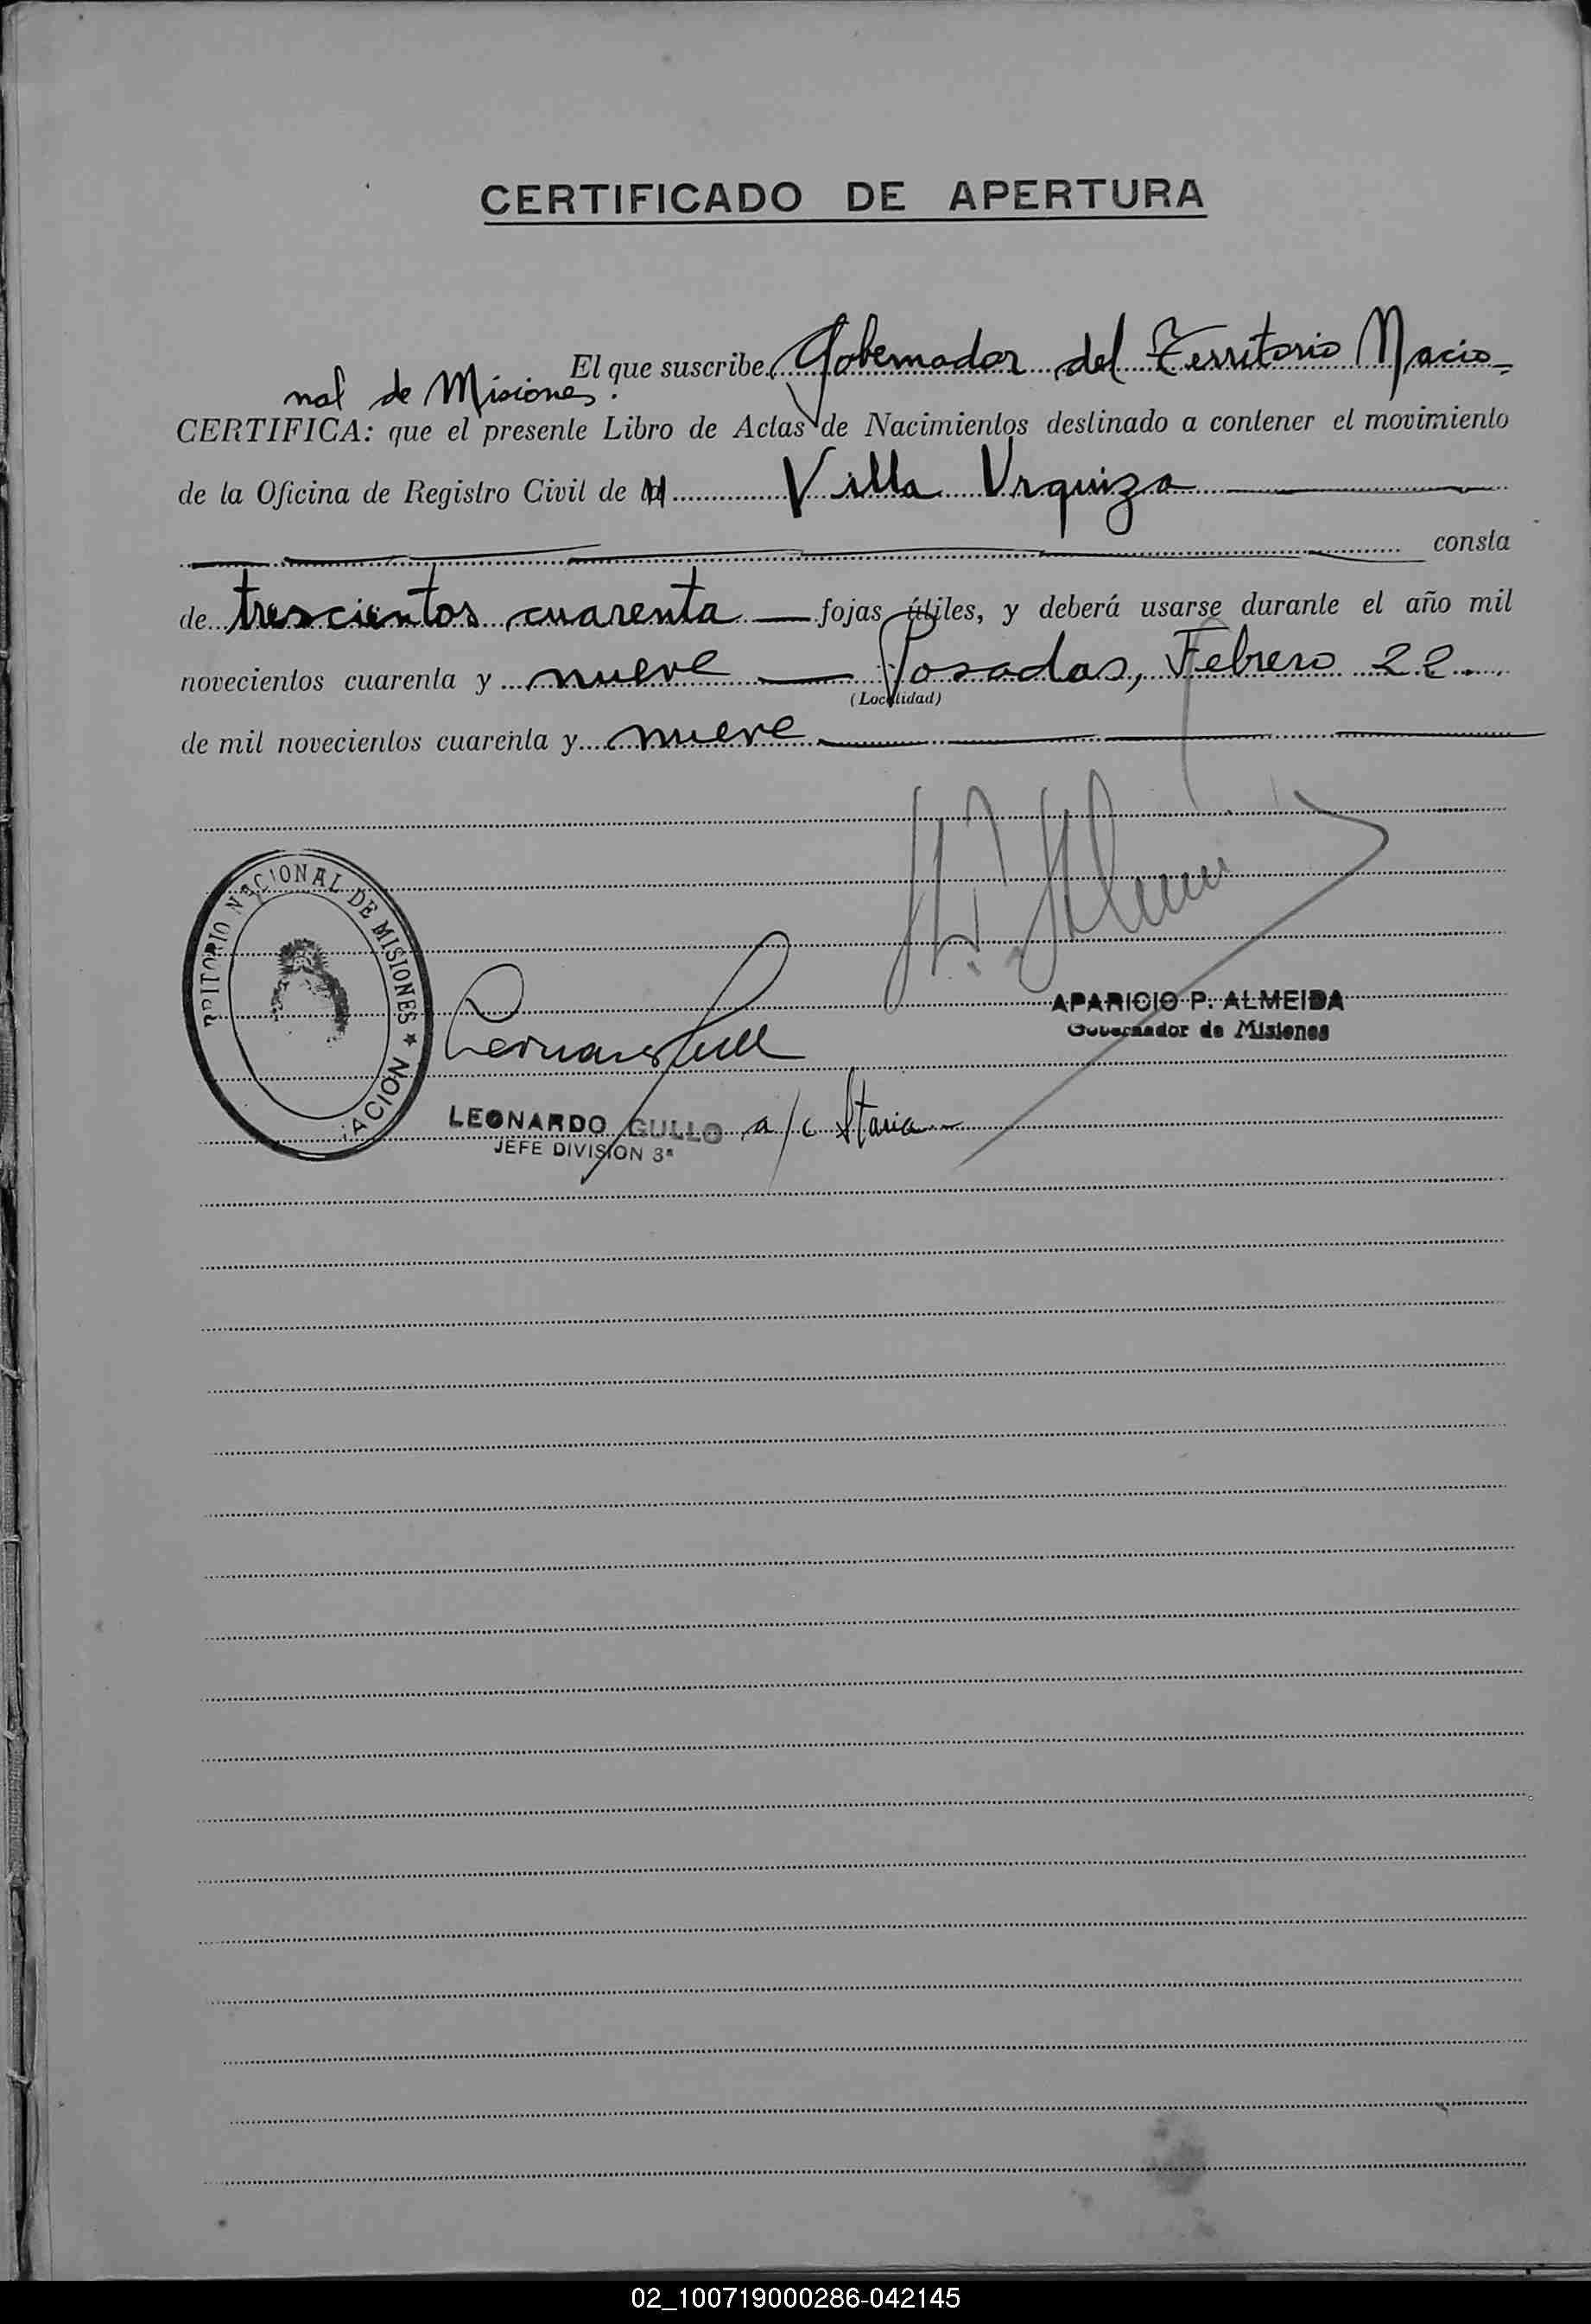 CERTIFICADO DE APERTURA
El que suscribe Gobernador del Territorio Nacio-
nal de Misiones.
CERTIFICA: que el presente Libro de Actas de Nacimientos destinado a contener el movimiento
de la Oficina de Registro Civil de Villa Urquiza
consta
de trescientos cuarenta fojas útiles, y deberá usarse durante el año mil
novecientos cuarenta y nueve Posadas, Febrero 22
(Localidad)
de mil novecientos cuarenta y nueve
NACIONAL DE MISIONES ★
APARICIO P. ALMEIDA
Gobernador de Misiones
LEONARDO GULLO a/c Staria
JEFE DIVISION 3ª
02_100719000286-042145